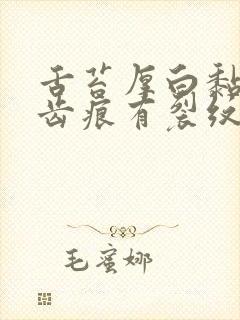 舌苔厚白黏
齿痕有裂纹
毛蜜娜